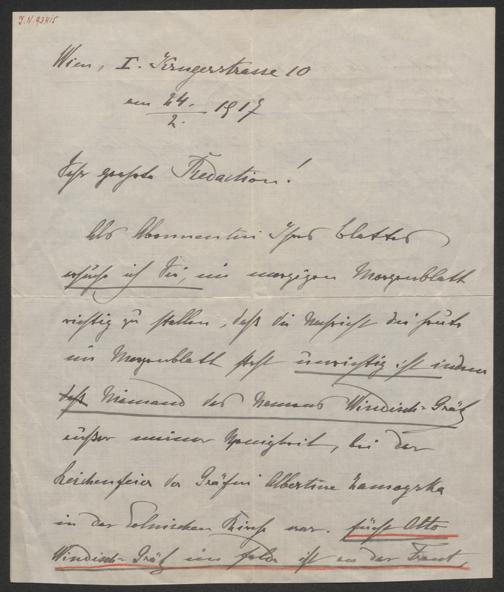 I.N. 93415
Wien, I. Krugerstrasse 10
am 24./2. 1917
Sehr geehrte Redaction!
Als Abonnentin Ihres Blattes
ersuche ich Sie, im morgigen Morgenblatt
richtig zu stellen, daß die Nachricht die heute
im Morgenblatt steht unrichtig ist indem
daß Niemand des Namens Windisch-Grätz
außer meiner Wenigkeit, bei der
Leichenfeier der Gräfin Albertine Zamoyska
in der Polnischen Kirche war. Fürst Otto
Windisch-Grätz im Felde ist an der Front,